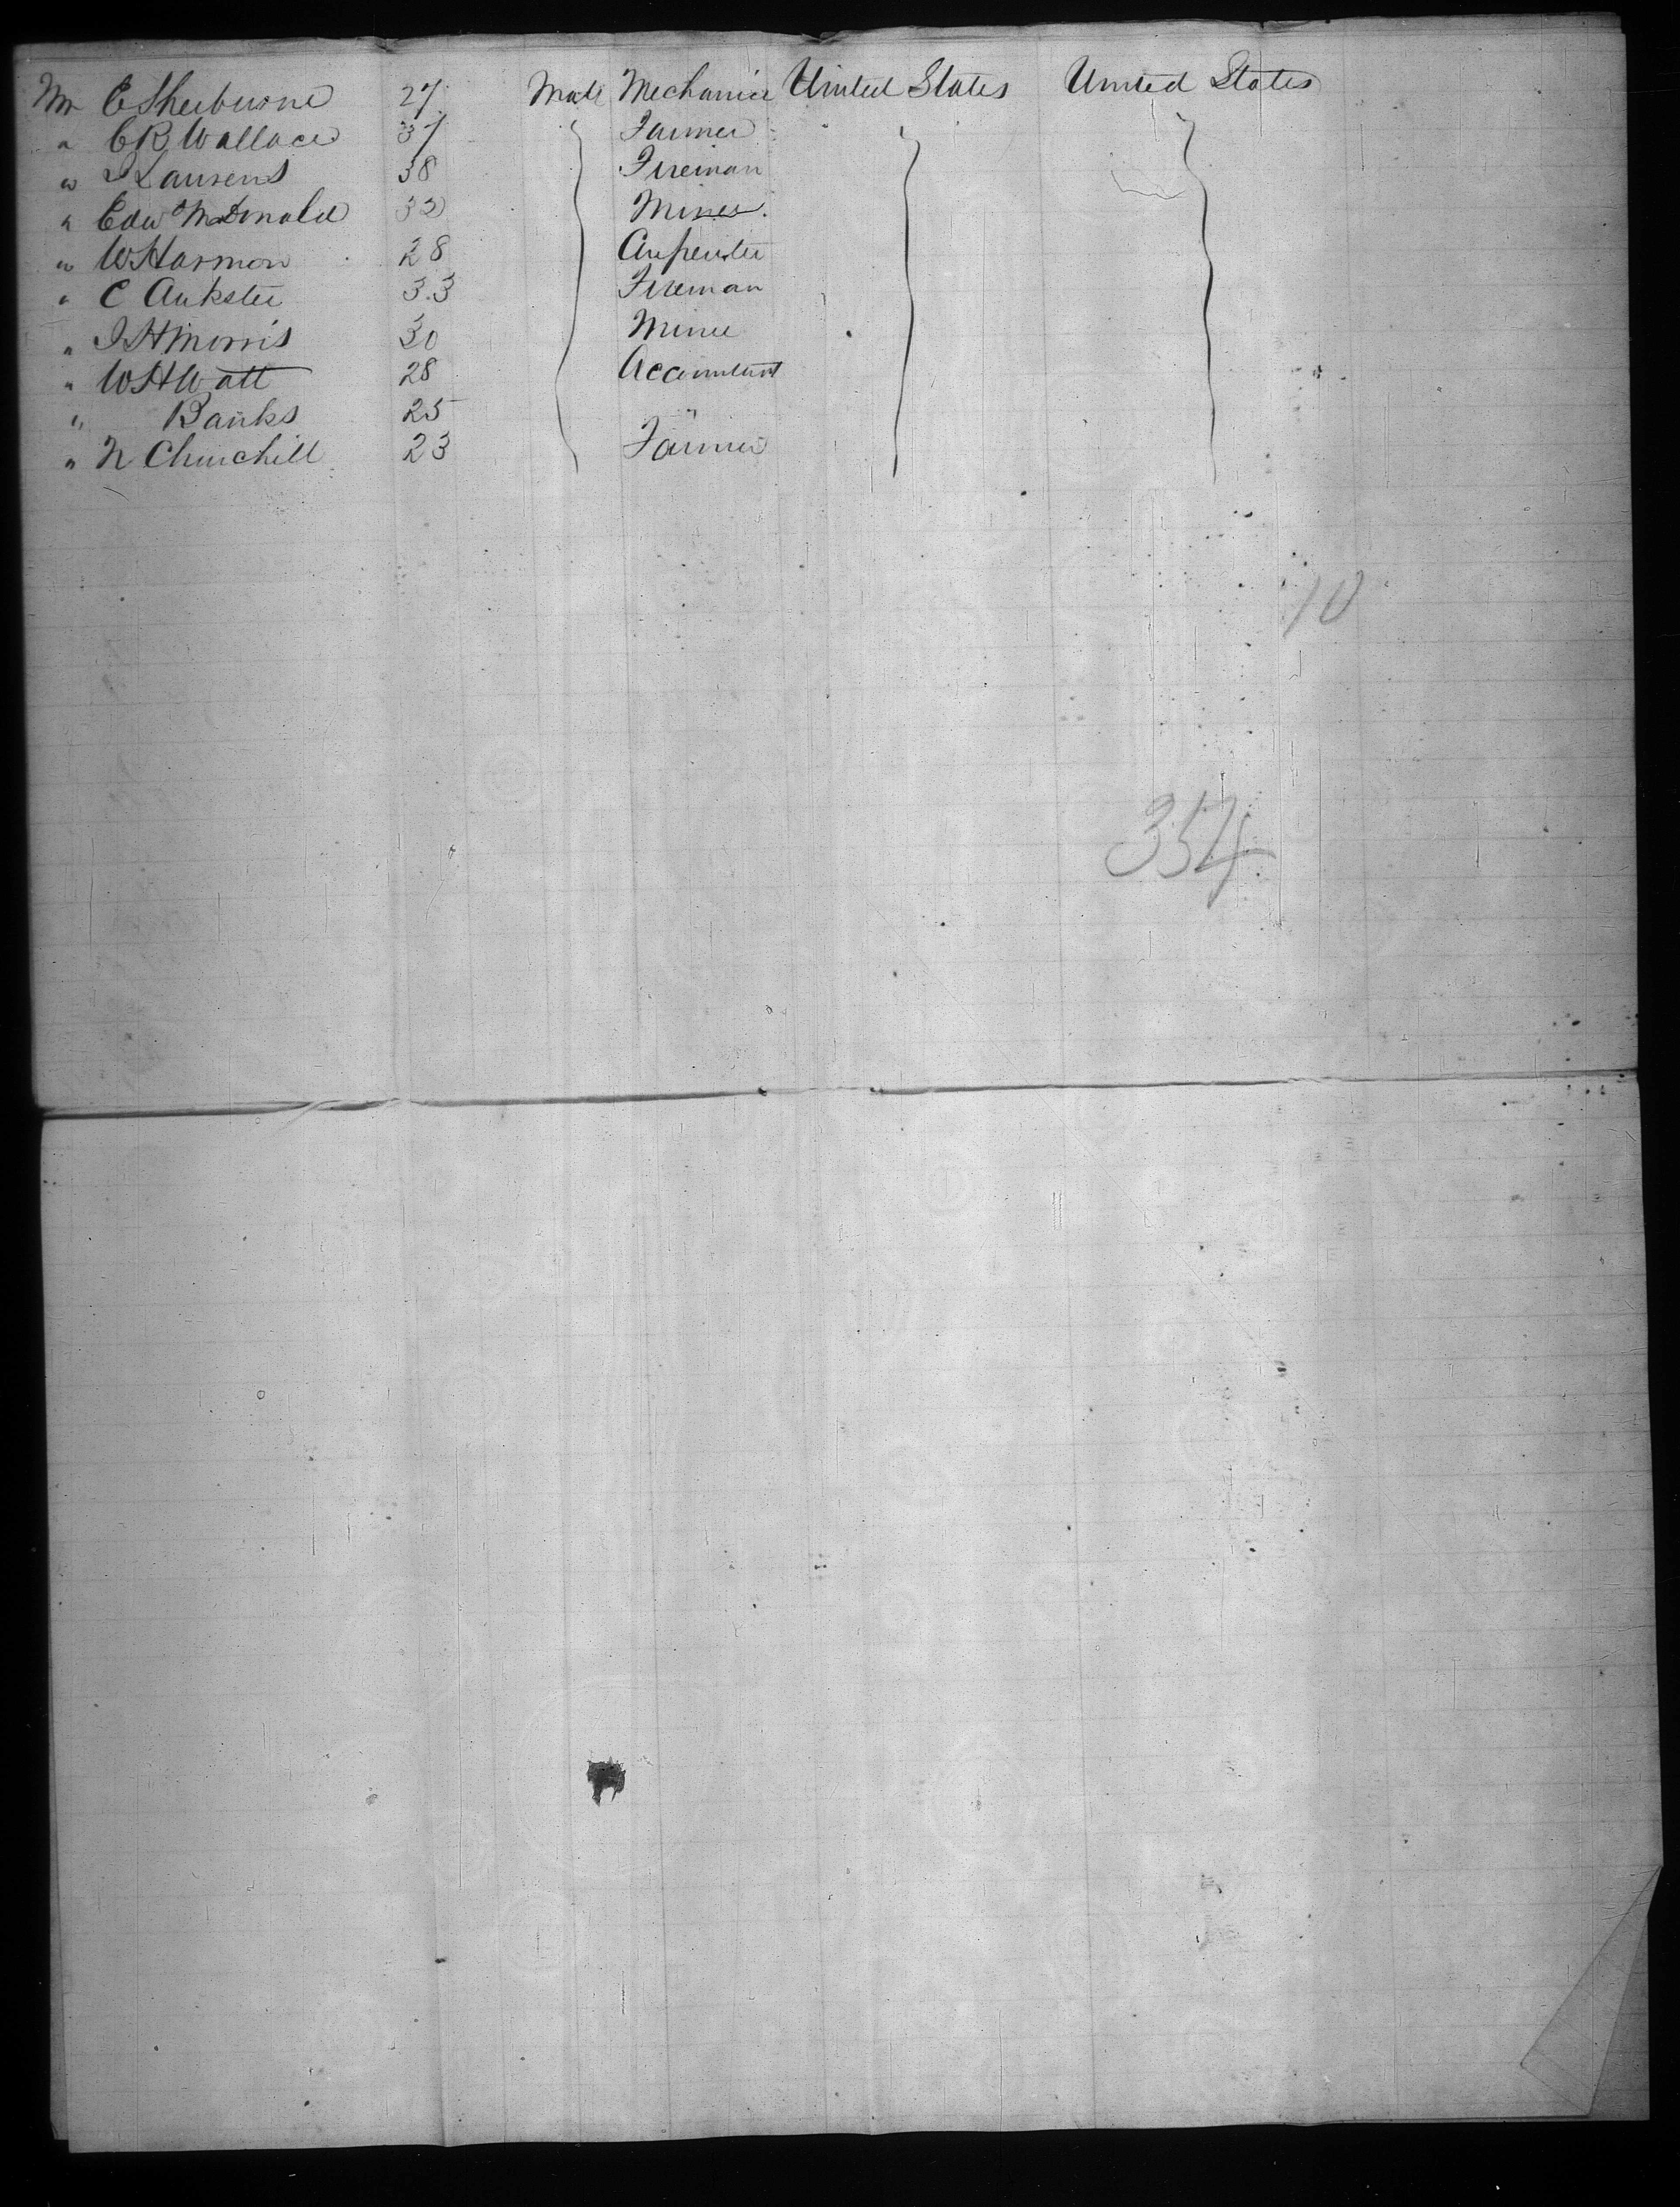 Mr E Sherburne 27 Male Mechanic United States United States
" C R Wallace 37 Farmer
" J Laurens 38 Fireman
" Edwd McDonald 32 Miner
" W Harmon 28 Carpenter
" C Aukster 33 Fireman
" J H Morris 30 Miner
" W H Watt 28 Accountant
" Banks 25 "
" N Churchill 23 Farmer
10
354